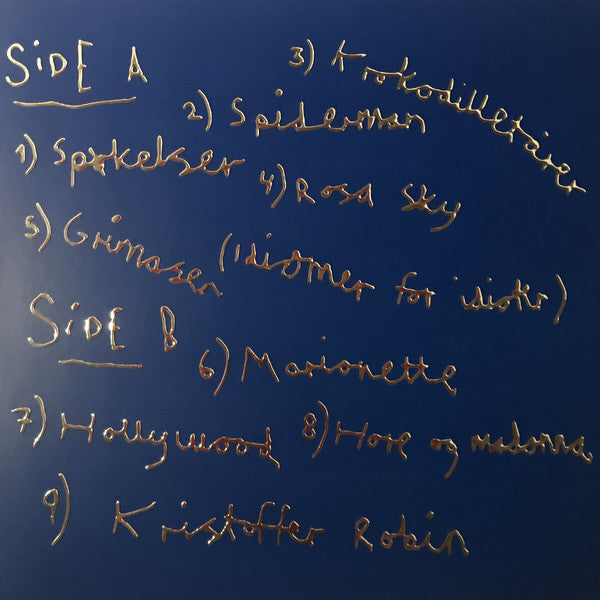 SiDE A
1) Spøkelser
2) Spiderman
3) Krokodilletårer
4) Rosa sky
5) Grimaser (Idiomer for idioter)
SiDE B
6) Marionette
7) Hollywood
8) Hore og madonna
9) Kristoffer Robin